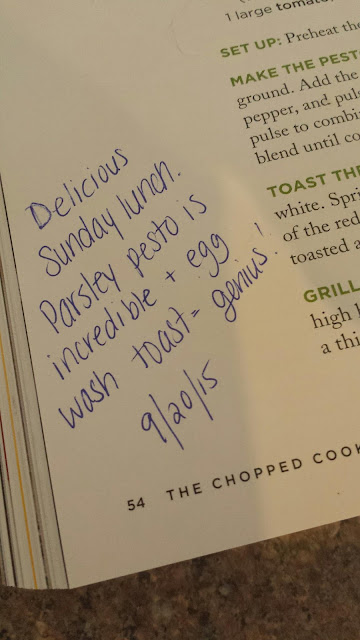 1 large tomato,
SET UP: Preheat the
MAKE THE PEST
ground. Add the
pepper, and puls
pulse to combi
blend until co
TOAST THE
white. Spri
of the red
toasted a
GRILL
high h
a thi
Delicious
Sunday lunch.
Parsley pesto is
incredible + egg
wash toast = genius!
9/20/15
54 THE CHOPPED COOK